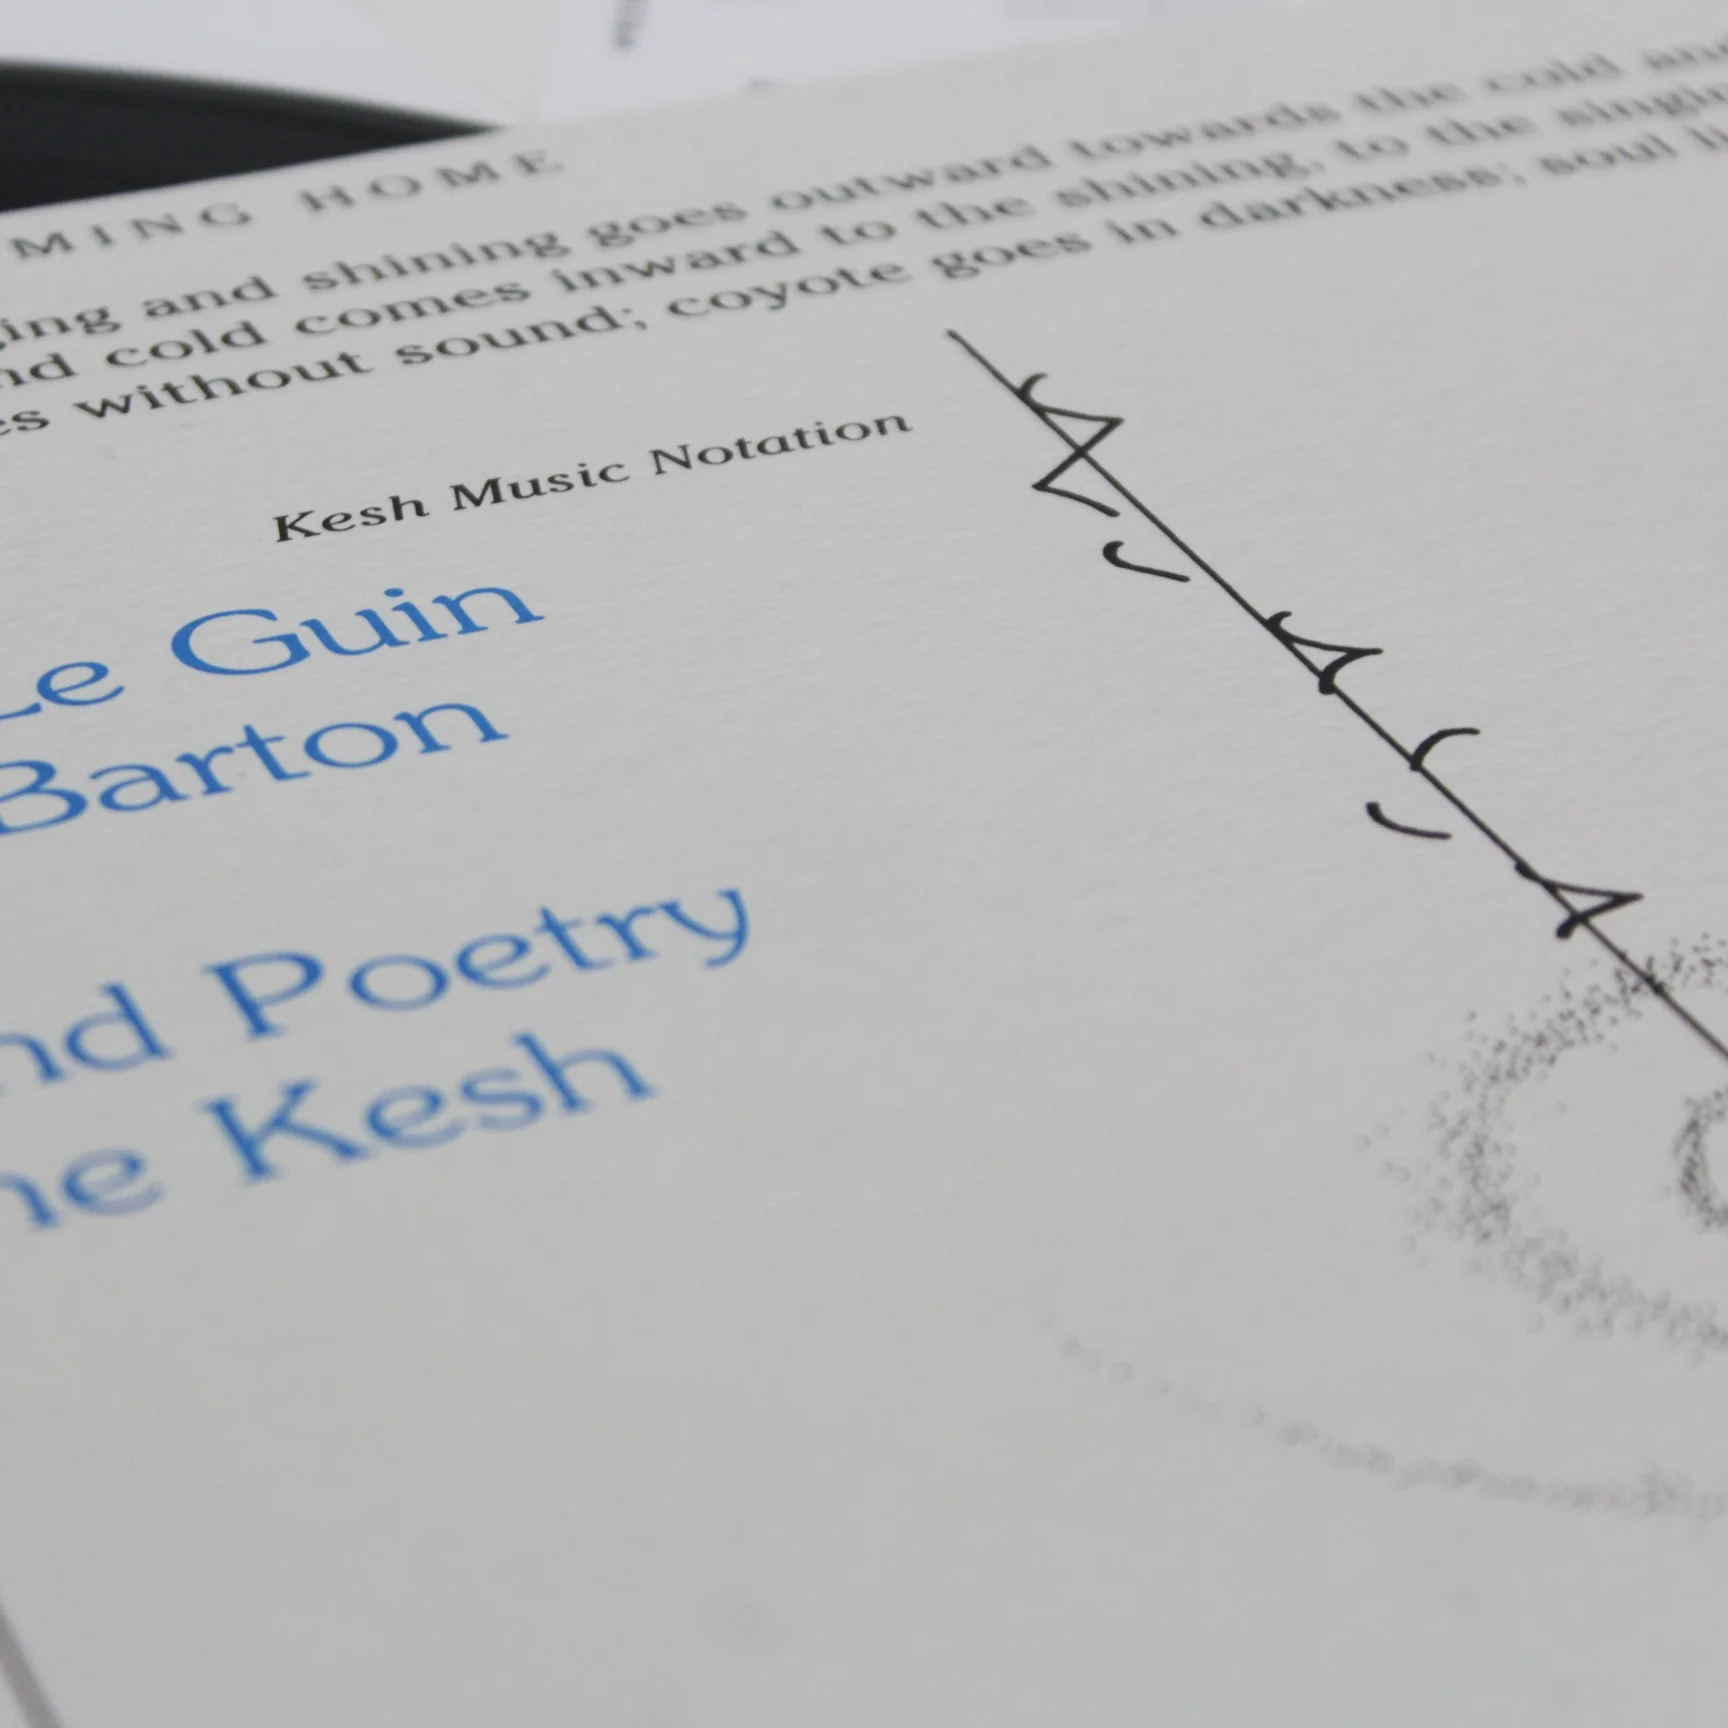 MING HOME
ing and shining goes outward towards the cold and
nd cold comes inward to the shining, to the singin
es without sound; coyote goes in darkness; soul li
Kesh Music Notation
Le Guin
Barton
nd Poetry
he Kesh